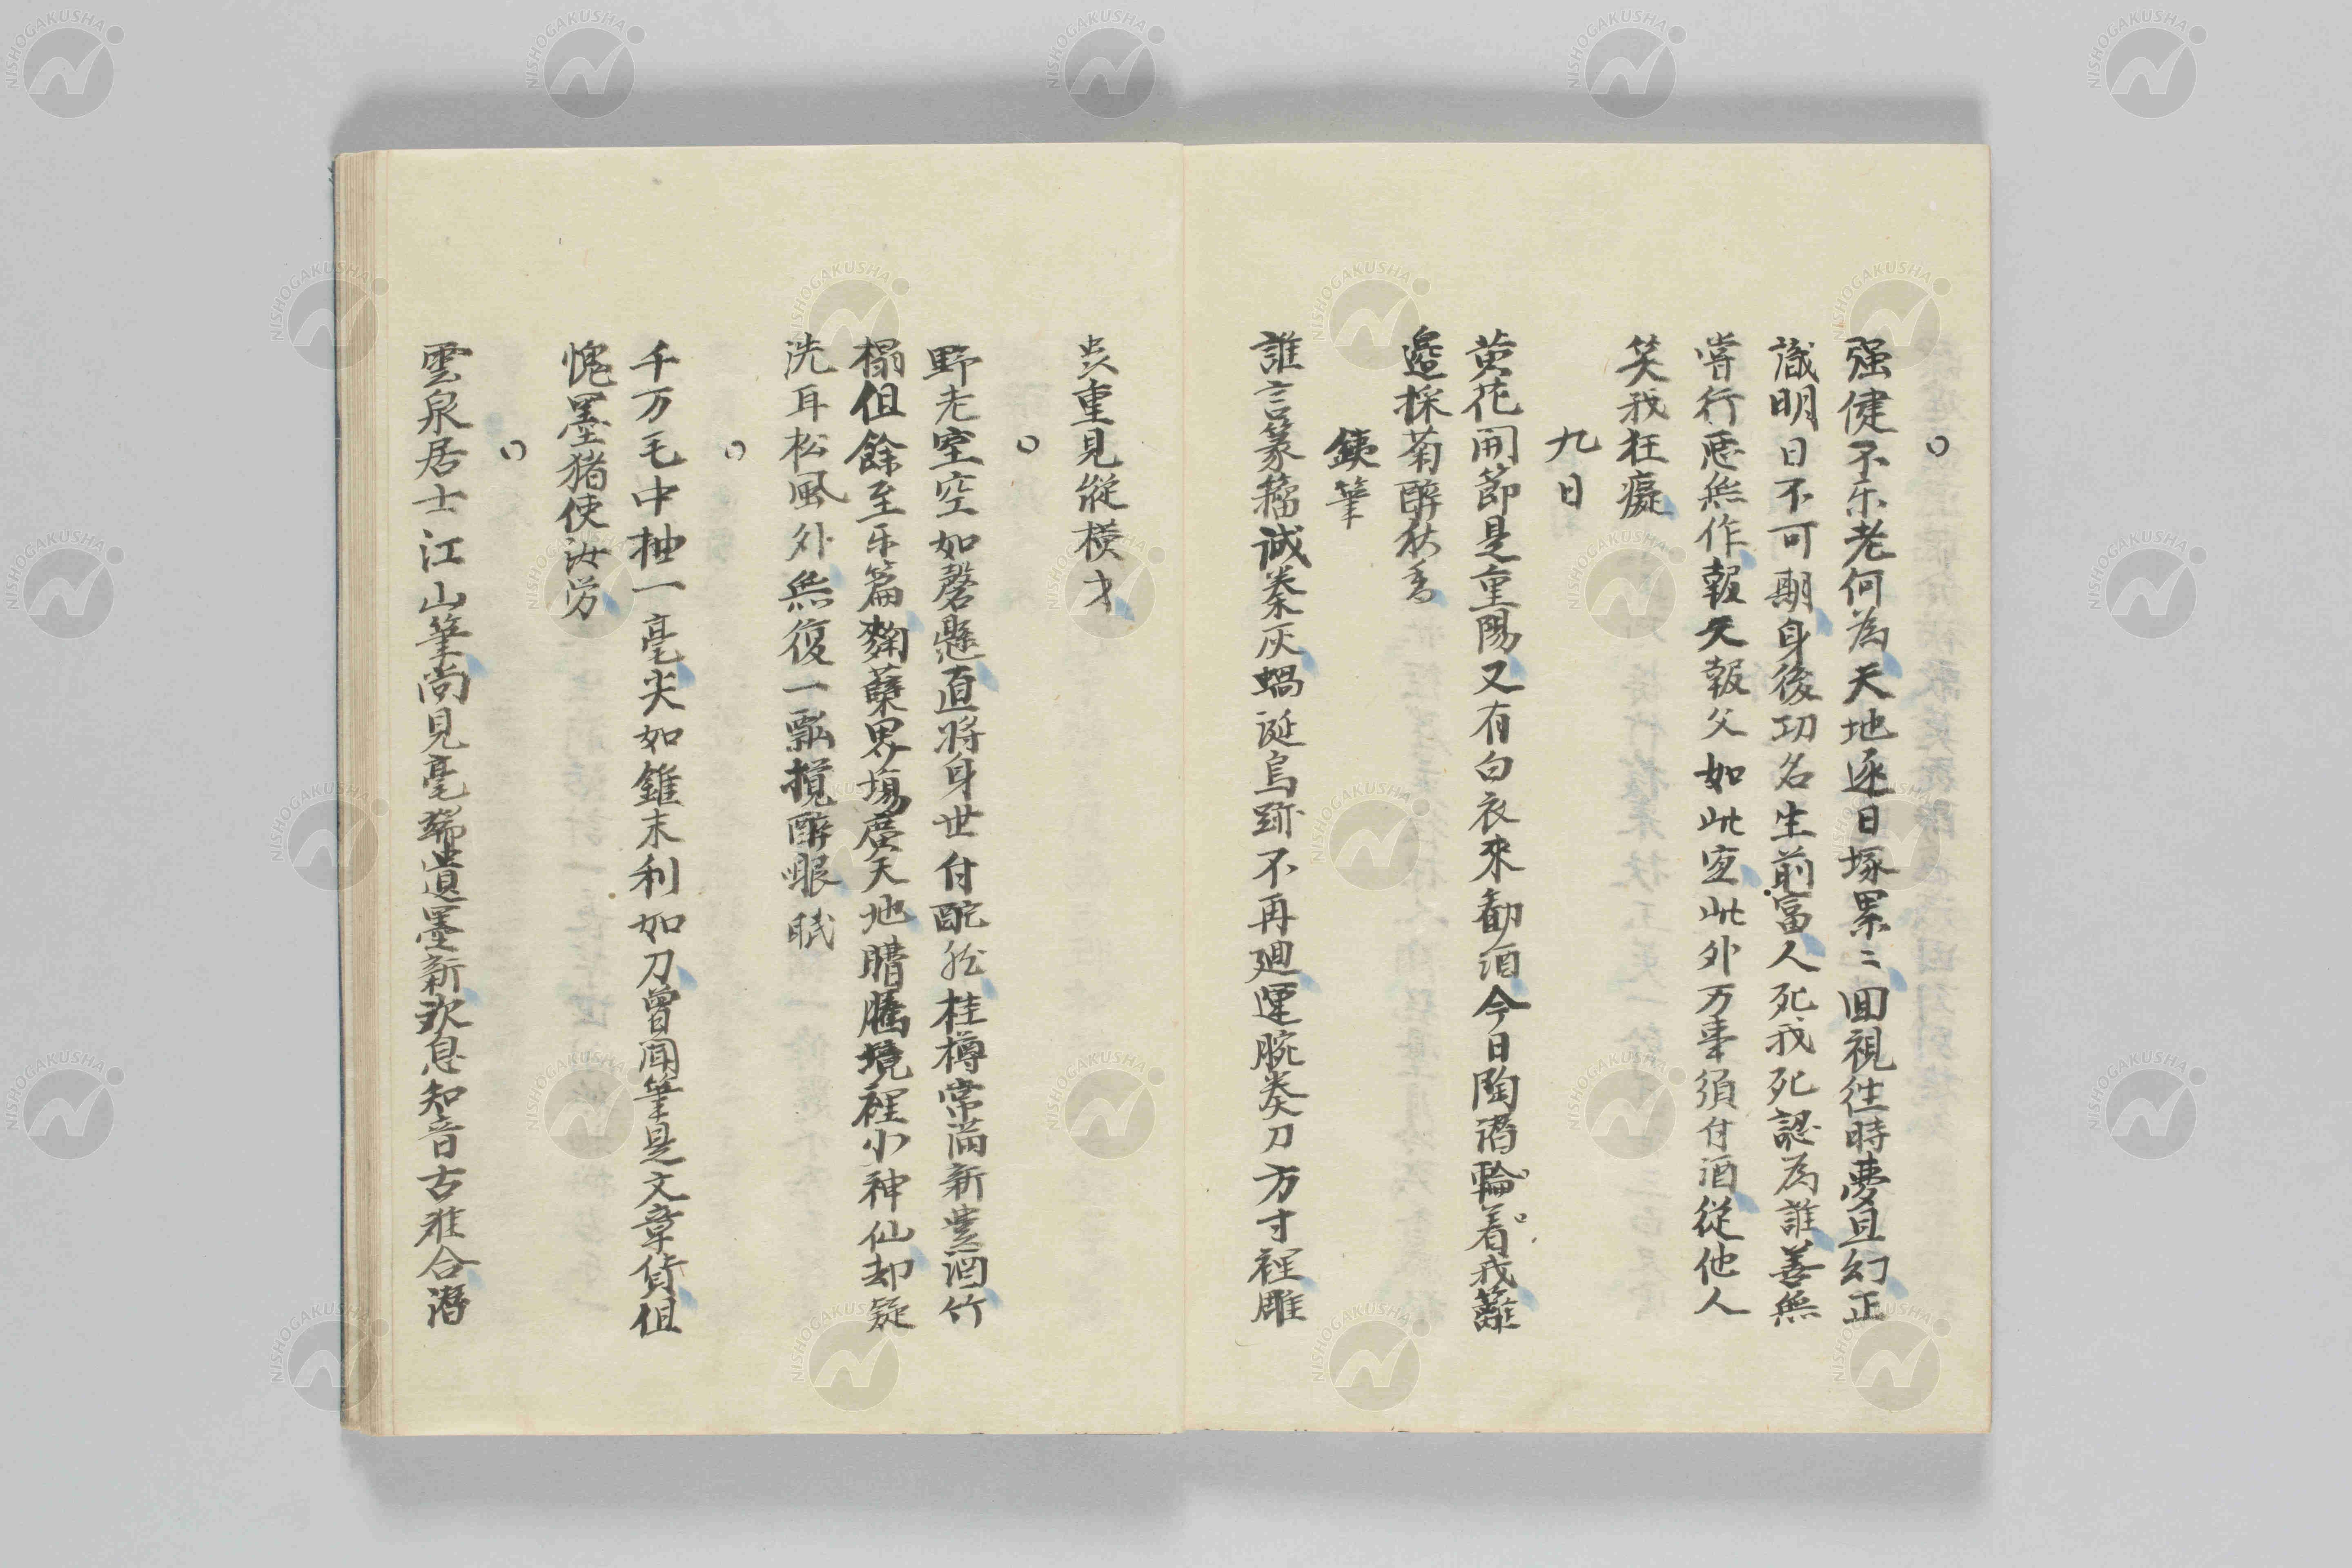 ○
强健不乐老何為天地逐日塚累〻回視徃時夢且幻正
識明日不可期身後功名生前富人死我死認為誰善無
嘗行悪無作報天報父如此安此外万事須付酒從他人
笑我狂癡
九日
黄花開節是重陽又有白衣來勸酒今日陶潜輪着我籬
邉採菊醉秋香
鉄筆
誰言篆籀誠秦灰蝸诞鳥跡不再廻運腕奏刀方寸裡雕
虫重見縱横才
○
野老室空如磬懸直將身世付酡然桂樽常滿新豊酒竹
榻但餘至乐篇麴蘖界塲席天地瞒騰境裡小神仙却疑
洗耳松風外無復一瓢攪醉眠
○
千万毛中抽一毫尖如錐末利如刀曾聞筆是文章貨但
愧墨猪使汝労
○
雲泉居士江山筆尚見毫端遺墨新欢息知音古难合潜
NISHOGAKUSHA